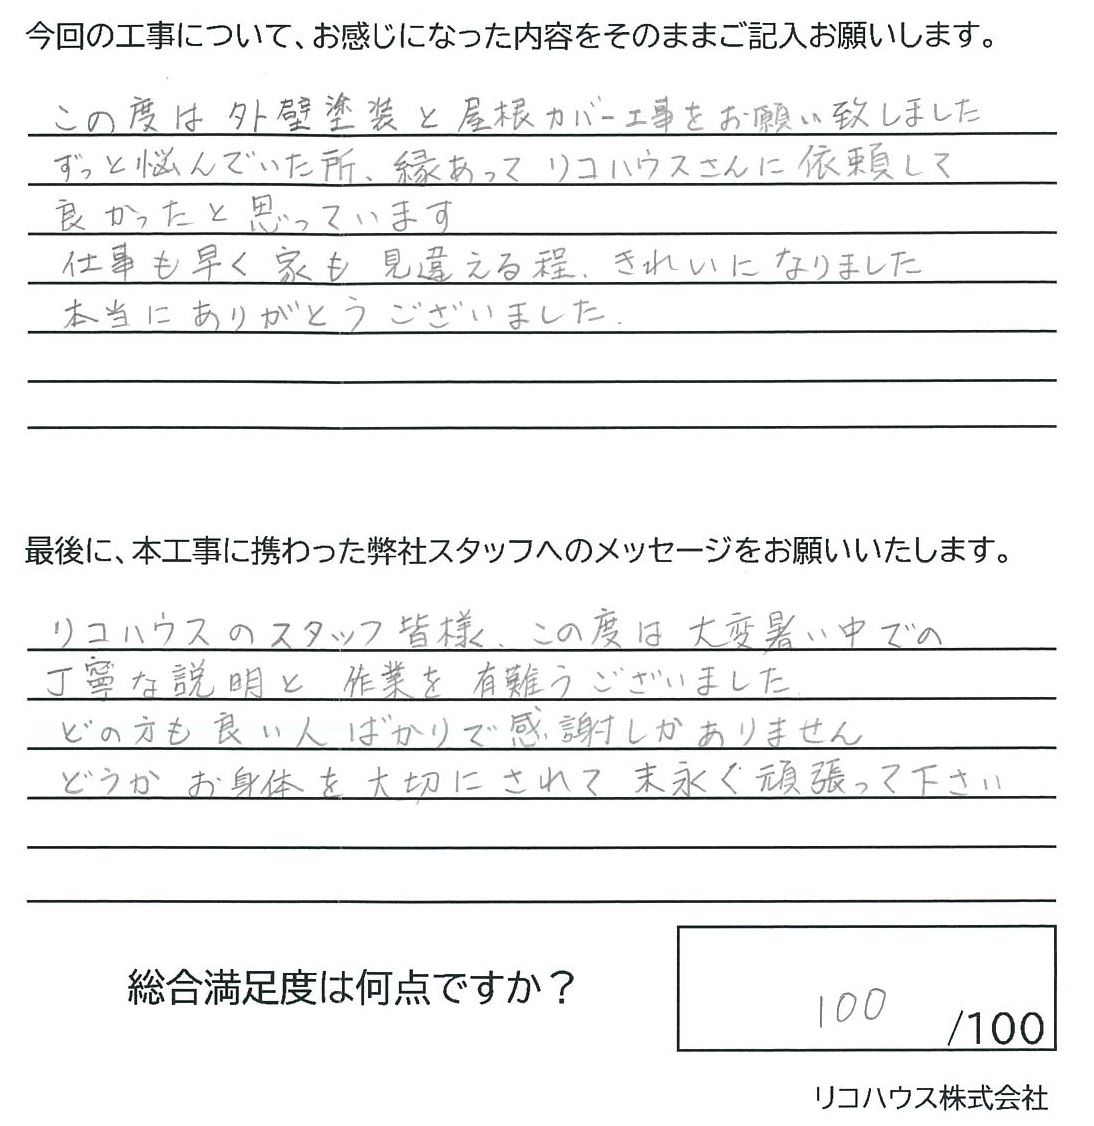 今回の工事について、お感じになった内容をそのままご記入お願いします。
この度は外壁塗装と屋根カバー工事をお願い致しました
ずっと悩んでいた所、縁あってリコハウスさんに依頼して
良かったと思っています
仕事も早く家も見違える程、きれいになりました
本当にありがとうございました.
最後に、本工事に携わった弊社スタッフへのメッセージをお願いいたします。
リコハウスのスタッフ皆様、この度は大変暑い中での
丁寧な説明と作業を有難うございました
どの方も良い人ばかりで感謝しかありません
どうかお身体を大切にされて末永ぐ頑張って下さい
総合満足度は何点ですか？
100 /100
リコハウス株式会社